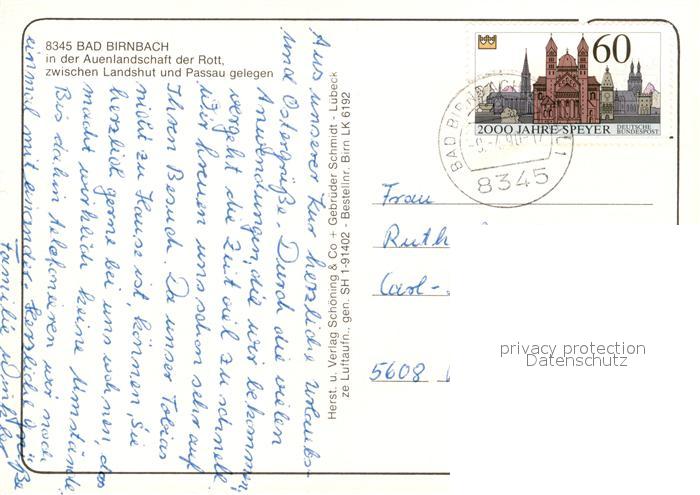 8345 BAD BIRNBACH
in der Auenlandschaft der Rott,
zwischen Landshut und Passau gelegen
Aus unserer Kur herzliche Urlaubs-
und Ostergrüße. Durch die vielen
Anwendungen, die wir bekommen,
vergeht die Zeit viel zu schnell.
Wir freuen uns schon sehr auf
Ihren Besuch. Da unser Tobias
nicht zu Hause ist, können Sie
herzlich gerne bei uns wohnen, das
macht wirklich keine Umstände.
Bis dahin telefonieren wir noch
einmal miteinander. Herzliche Grüße
Familie Winkler
Herst. u. Verlag Schöning & Co + Gebrüder Schmidt - Lübeck
ze Luftaufn., gen. SH 1-91402 - Bestellnr. Birn LK 6192
60
2000 JAHRE SPEYER
DEUTSCHE
BUNDESPOST
BAD BIRNBACH
8345
Frau
Ruth
Carl-
5608
privacy protection
Datenschutz